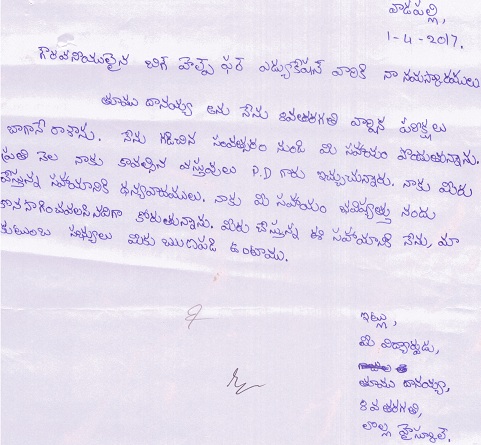 వాడపల్లి,
1-4-2017.
గౌరవనీయులైన బిగ్ హెల్ప్ ఫర్ ఎడ్యుకేషన్ వారికి నా నమస్కారములు
తూము దానయ్య అను నేను 8వతరగతి వార్షిక పరీక్షలు
బాగానే రాశాను. నేను గడిచిన సంవత్సరం నుండి మీ సహాయం పొందుతున్నాను.
ప్రతి నెల నాకు కావల్సిన వస్తువులు P.D గారు ఇచ్చుచున్నారు. నాకు మీరు
చేస్తున్న సహాయానికి ధన్యవాదములు. నాకు మీ సహాయం భవిష్యత్తు నందు
కొనసాగించవలసినదిగా కోరుతున్నాను. మీరు చేస్తున్న ఈ సహాయానికి నేను, మా
కుటుంబ సభ్యులు మీకు ఋణపడి ఉంటాము.
ఇట్లు,
మీ విద్యార్థుడు,
తూము దానయ్య,
8వ తరగతి,
లొల్ల హైస్కూల్.